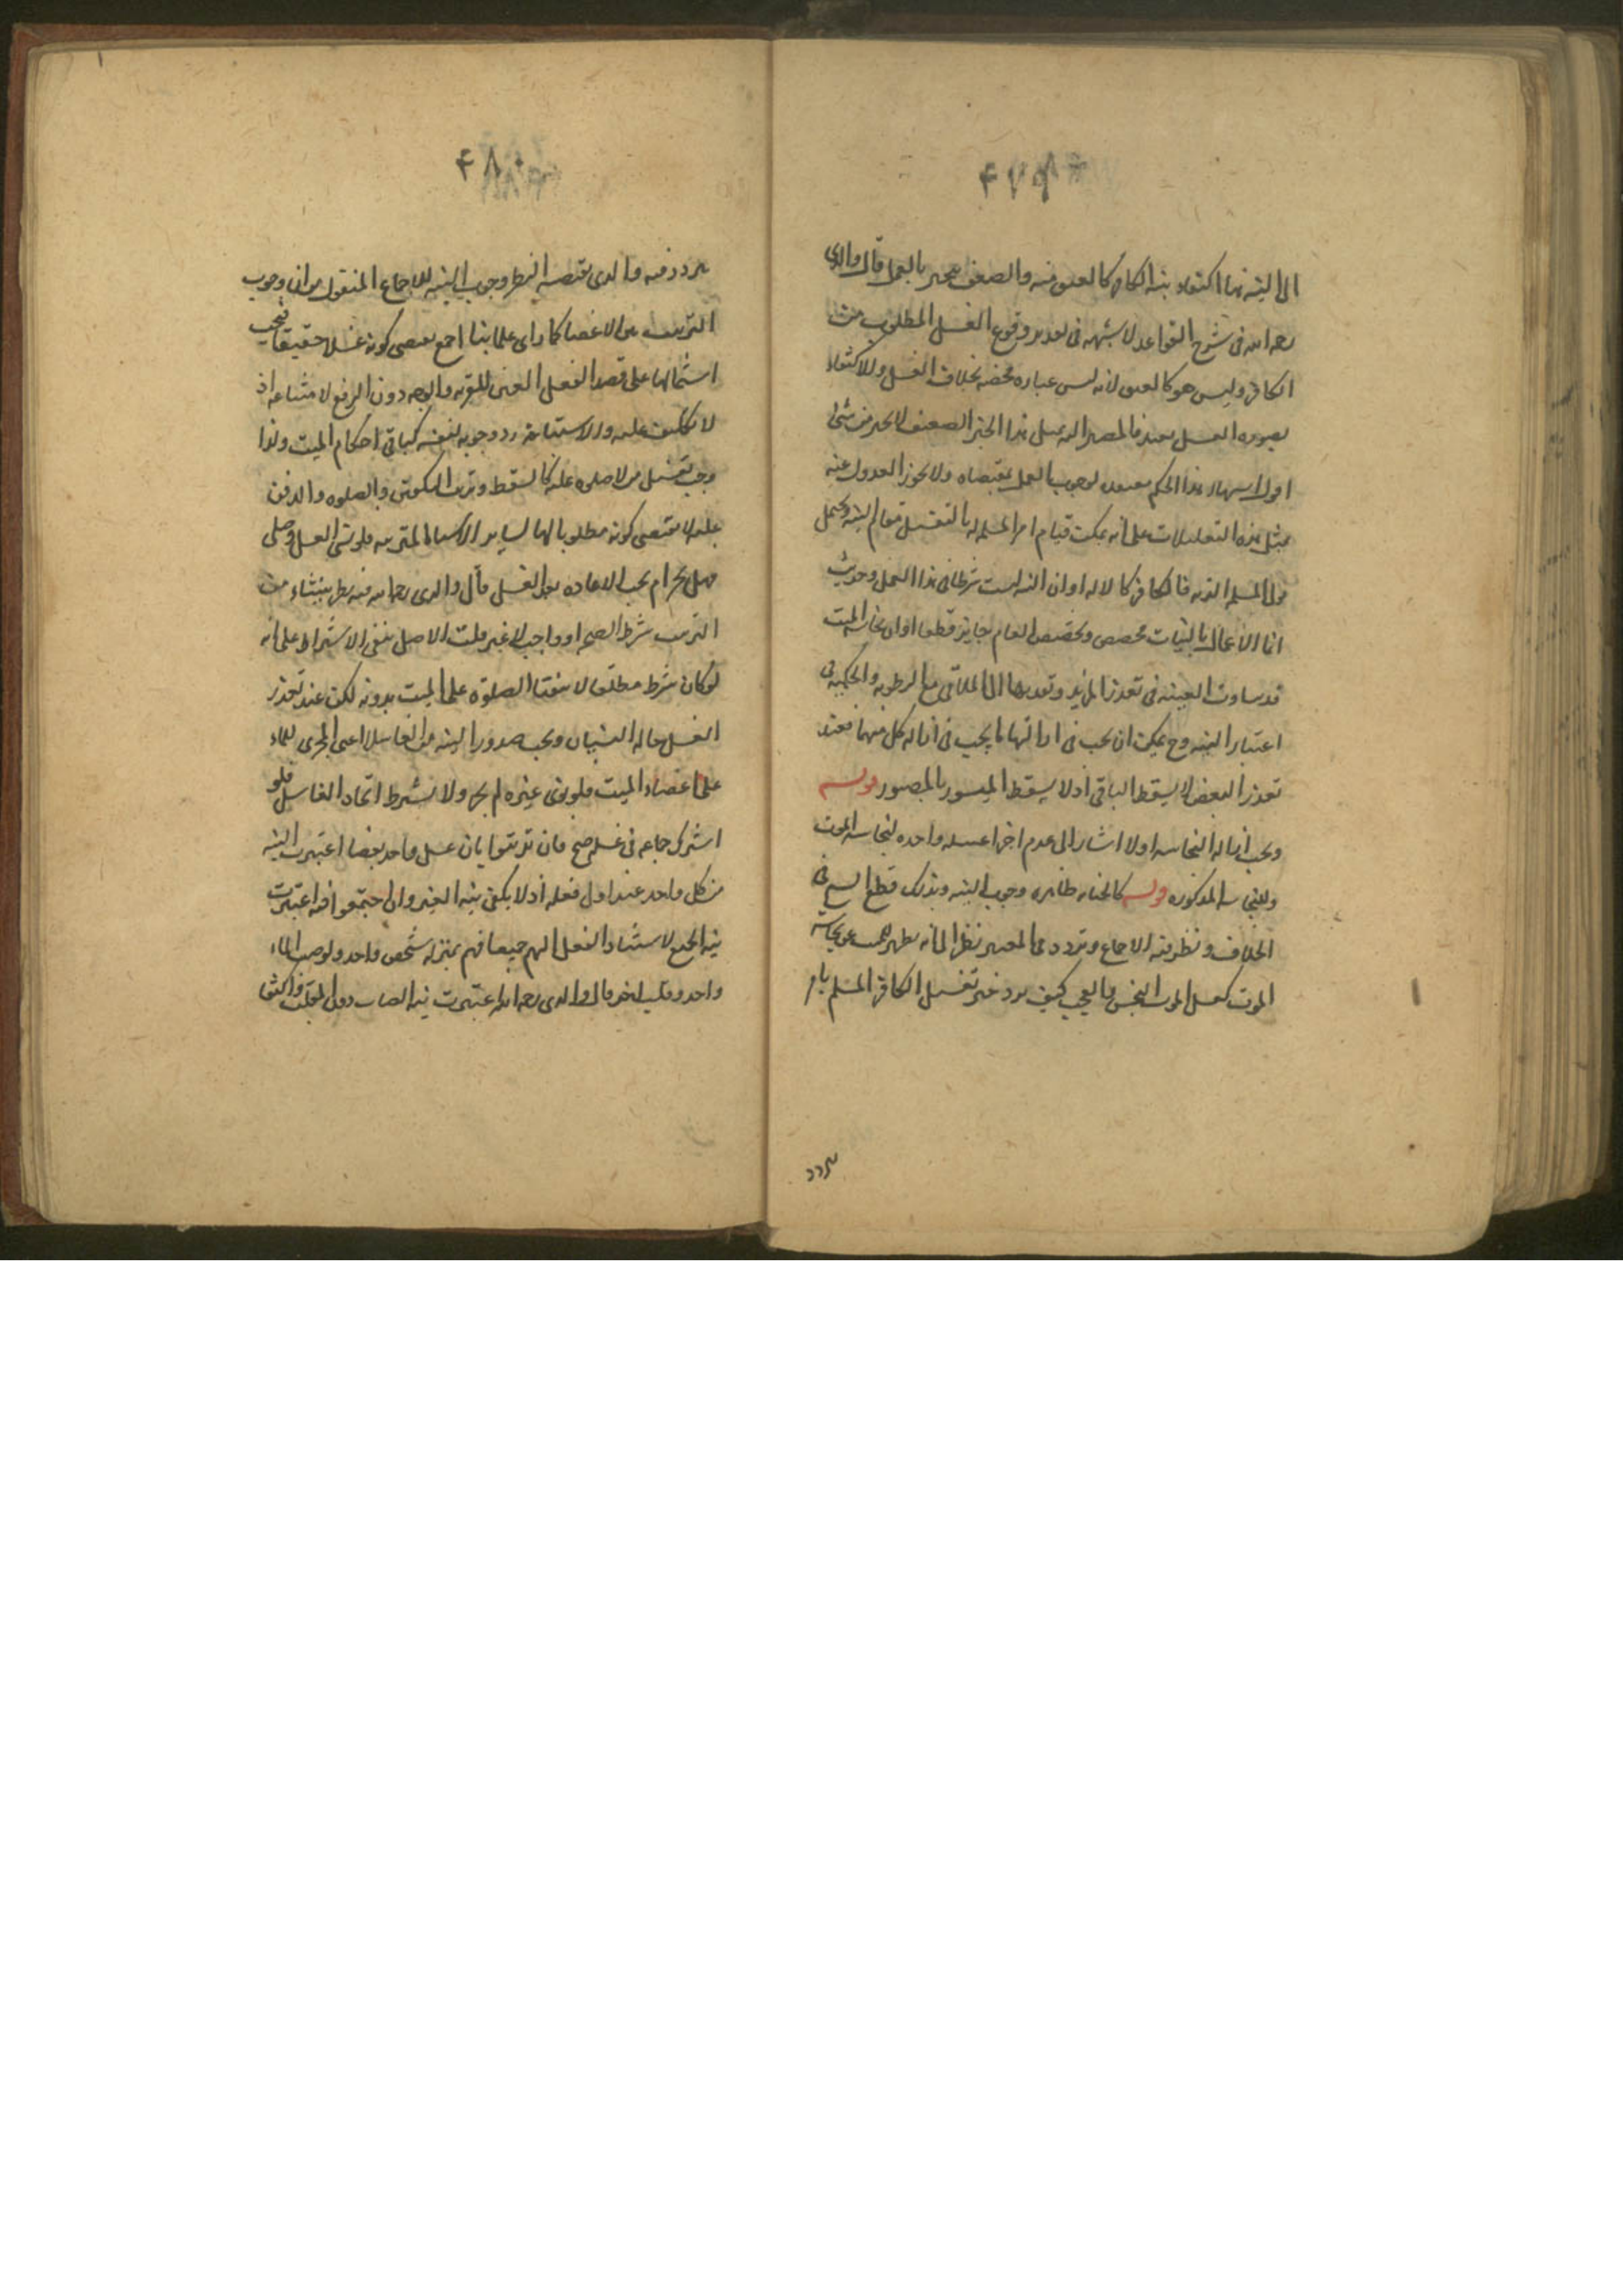 ۴۷۹
الى النية هنا اكتفاء بنية الكافر كالعتق منه والضعف منجبر بالعمل قال والدي
رحمه الله في شرح القواعد لا شبهة في تعدد وقوع الغسل المطلوب من
الكافر وليس هو كالعتق لانه ليس عباده محضه بخلاف الغسل وللاكتفاء
بصوره الغسل بعيد فالمصير الى مثل هذا الخبر الضعيف لا يخلو من شئ
اقول اشتهار هذا الحكم لوجوب العمل بمقتضاه ولا يجوز العدول عنه
بمثل هذه التعليلات على انه يمكن قيام امر المسلم له بالتغسيل مقام النية ويحتمل
تولى المسلم النية فالكافر كالاله او ان النية ليست شرطا في هذا المحل وحديث
انما الاعمال بالنيات مخصص وتخصيص العام جايز قطعا او ان نجاسة الميت
قد ساوت العينيه في تعذر المزيد وتعديها الى الملاقي مع الرطوبه والحكمية في
اعتبار النية وح يمكن ان يجب في ازالتها ما يجب في ازاله كل منهما فعند
تعذر البعض لا يسقط الباقي اذ لا يسقط الميسور بالمعسور قوله
ويجب ازاله النجاسه اولا اشار الى عدم اجزا غسله واحده لنجاسه الموت
وللنجاسه المذكوره قوله كالجنابه ظاهره وجوب النية وبذلك قطع الشيخ في
الخلاف ونظر فيه الاجماع وتردد في المعتبر نظرا الى انه تطهير للميت من نجاسه
الموت كغسل الثوب النجس والعجب كيف يرد خبر تغسيل الكافر المسلم بامر
تردد
۴۸۰
تردد فيه والذي يقتضيه النظر وجوب النية للاجماع المنقول وان وجوب
الترتيب بين الاعضا كما راى علماينا اجمع يقتضي كونه غسلا حقيقيا فيجب
اشتمالها على قصد الفعل المعين للقربه والوجه دون الرفع لامتناعه اذ
لا تكليف عليه ولا استباحه وجوبه لنفسه كباقي احكام الميت ولذا
وجب تغسيل من لا صلوه عليه كالسقط وترتب التكفين والصلوه والدفن
عليه لا يقتضي كونه مطلوبا لها لساير الاسباب المترتبه فلو نسي الغسل وصلى
فهل يحرم ام يجب الاعاده بعد الغسل قال والدي رحمه الله فيه نظر ينشاء من
الترتيب شرط الصحه او واجب لا غير قلت الاصل ينفي الاشتراط على انه
لو كان شرطا مطلقا لانتفت الصلوة على الميت بدونه لكن عند تعذر
الغسل حاله النسيان ويجب صدور النيه من الغاسل اعني المجري للماء
على اعضاء الميت فلو نوى غيره لم يجز ولا يشترط اتحاد الغاسل فلو
اشترك جماعه في غسله صح فان ترتبوا بان غسل واحد بعضا اعتبرت النية
من كل واحد عند اول فعله اذ لا يكفي نية الغير وان اجتمعوا فيه اعتبرت
نية الجميع لاستناد الفعل اليهم جميعا فهم بمنزله شخص واحد ولو صب الماء
واحد وقلب اخر قال والدي رحمه الله اعتبرت نية الصاب دون المقلب واكتفا